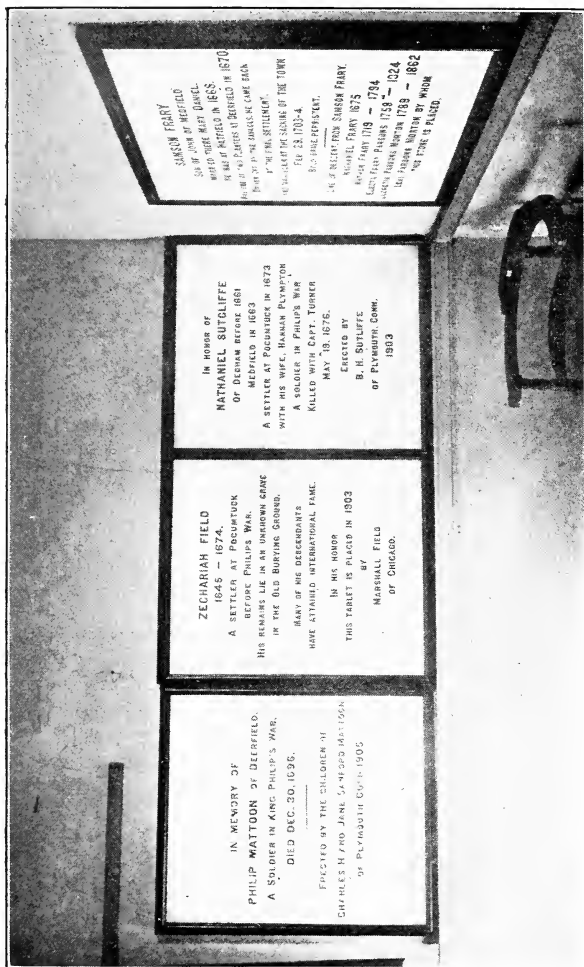 IN MEMORY OF
PHILIP MATTOON OF DEERFIELD.
A SOLDIER IN KING PHILIP'S WAR.
DIED DEC. 30, 1696.
ERECTED BY THE CHILDREN OF
CHARLES H AND JANE SANFORD MATTOON
OF PLYMOUTH CONN 1905
ZECHARIAH FIELD
1645 – 1674.
A SETTLER AT POCUMTUCK
BEFORE PHILIPS WAR.
HIS REMAINS LIE IN AN UNKNOWN GRAVE
IN THE OLD BURYING GROUND.
MANY OF HIS DESCENDANTS
HAVE ATTAINED INTERNATIONAL FAME.
IN HIS HONOR
THIS TABLET IS PLACED IN 1903
BY
MARSHALL FIELD
OF CHICAGO.
IN HONOR OF
NATHANIEL SUTCLIFFE
OF DEDHAM BEFORE 1661
MEDFIELD IN 1663
A SETTLER AT POCUMTUCK IN 1673
WITH HIS WIFE, HANNAH PLYMPTON
A SOLDIER IN PHILIP'S WAR
KILLED WITH CAPT. TURNER
MAY 19, 1676.
ERECTED BY
B. H. SUTLIFFE
OF PLYMOUTH, CONN.
1903
SAMSON FRARY
SON OF JOHN OF MEDFIELD
MARRIED THERE MARY DANIEL
HE WAS AT HATFIELD IN 1668.
PLANTERS AT DEERFIELD IN 1670.
HE CAME BACK
AT THE FINAL SETTLEMENT.
AT THE SACKING OF THE TOWN
FEB 29, 1703-4.
LINE OF DESCENT FROM SAMSON FRARY.
NATHANIEL FRARY 1675
FRARY 1719 – 1794
ELECTA FRARY PARSONS 1758 – 1824
PARSONS MORTON 1789 – 1862
LEVI PARSONS MORTON BY WHOM
THIS STONE IS PLACED.